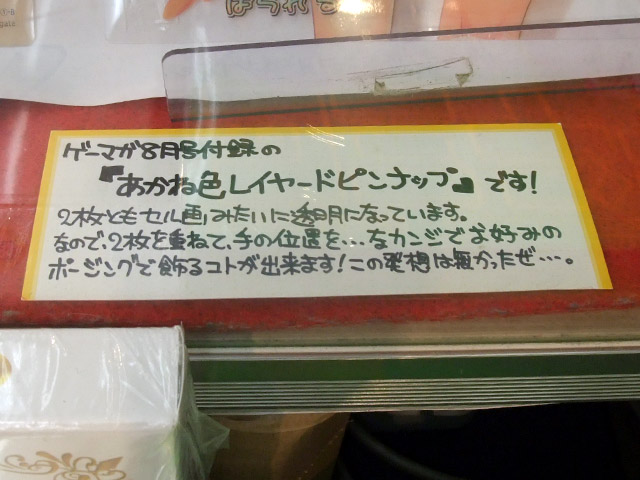 ゲーマガ8月号付録の
『あかね色レイヤードピンナップ』です!
2枚ともセル画みたいに透明になっています。
なので、2枚を重ねて、手の位置を…なカンジでお好みの
ポージングで飾るコトが出来ます!この発想は無かったぜ…。